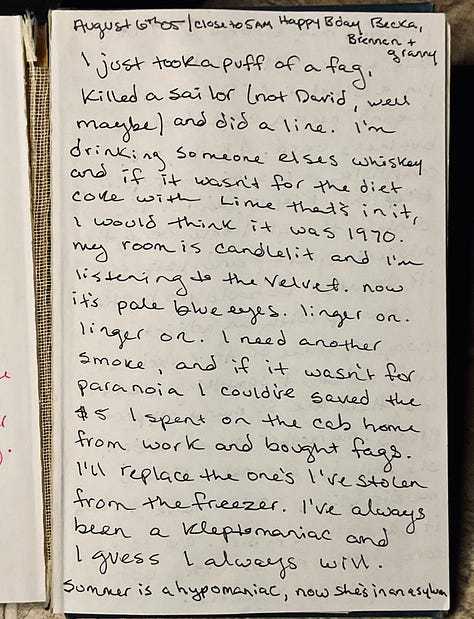 August 6th 05 / close to 5AM Happy Bday Becka,
Brennen +
granny
I just took a puff of a fag,
killed a sailor (not David, well
maybe) and did a line. I'm
drinking someone elses whiskey
and if it wasn't for the diet
coke with Lime that's in it,
I would think it was 1970.
my room is candlelit and I'm
listening to the Velvet. now
it's pale blue eyes. linger on.
linger on. I need another
smoke, and if it wasn't for
paranoia I could've saved the
$5 I spent on the cab home
from work and bought fags.
I'll replace the one's I've stolen
from the freezer. I've always
been a kleptomaniac and
I guess I always will.
Summer is a hypomaniac, now she's in an asylum